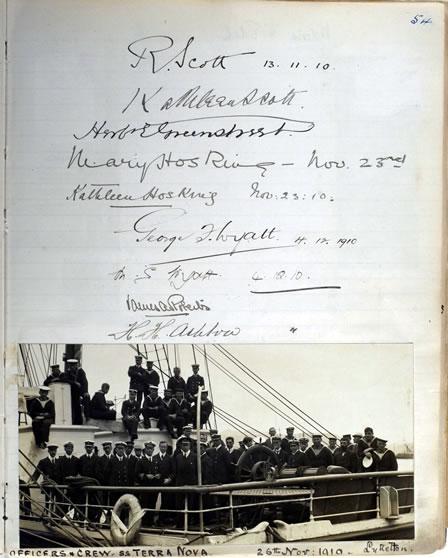 54
R. Scott 13.11.10.
Kathleen Scott.
Herbt E Greenstreet.
Mary Hosking – Nov. 23rd
Kathleen Hosking Nov: 23: 10.
George F. Wyatt. 4.12.1910
M. S. Wyatt.
James A Roberts
H. H. Ashton "
OFFICERS & CREW. SS TERRA NOVA. 26th Nov: 1910. Lyttelton.